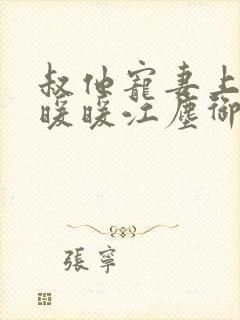 叔他寵妻上
暖暖江塵御
張寧